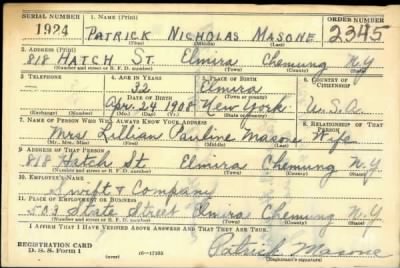 SERIAL NUMBER 1. NAME (Print) ORDER NUMBER
1924 PATRICK NICHOLAS MASONE 2345
(First) (Middle) (Last)
2. ADDRESS (Print)
818 HATCH ST. Elmira Chemung N.Y.
(Number and street or R. F. D. number) (Town) (County) (State)
3. TELEPHONE 4. AGE IN YEARS 5. PLACE OF BIRTH 6. COUNTRY OF CITIZENSHIP
— 32 Elmira
DATE OF BIRTH (Town or county)
Apr. 24 1908 New York U.S.A.
(Exchange) (Number) (Mo.) (Day) (Yr.) (State or country)
7. NAME OF PERSON WHO WILL ALWAYS KNOW YOUR ADDRESS 8. RELATIONSHIP OF THAT PERSON
Mrs Lillian Pauline Masone Wife
(Mr., Mrs., Miss) (First) (Middle) (Last)
9. ADDRESS OF THAT PERSON
818 Hatch St Elmira Chemung N.Y.
(Number and street or R. F. D. number) (Town) (County) (State)
10. EMPLOYER'S NAME
Swift & Company
11. PLACE OF EMPLOYMENT OR BUSINESS
503 State Street Elmira Chemung N.Y.
(Number and street or R. F. D. number) (Town) (County) (State)
I AFFIRM THAT I HAVE VERIFIED ABOVE ANSWERS AND THAT THEY ARE TRUE.
REGISTRATION CARD
D. S. S. Form 1 (over) 16—17105 Patrick Masone
(Registrant's signature)